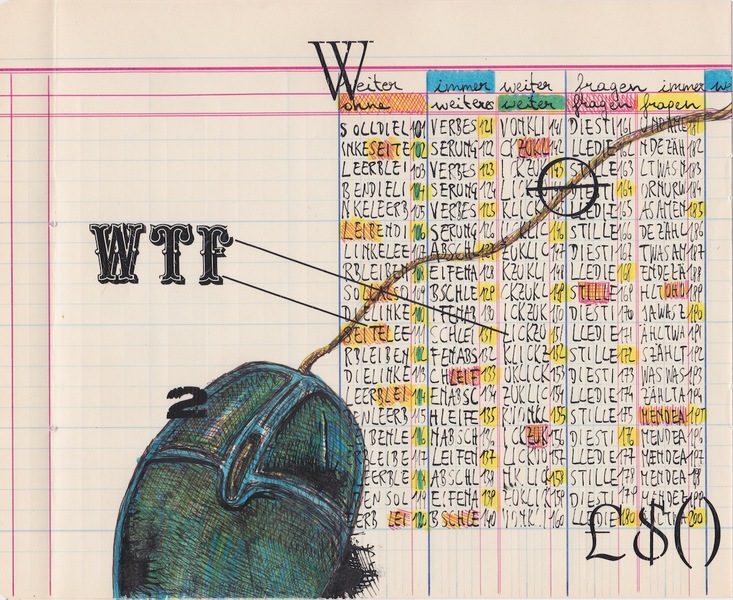 Weiter immer weiter fragen immer
ohne weiters weiter fragen fragen
SOLLDIEL 101 VERBES 121 VONKLI 141 DIESTI 161 181
INKESEITE 102 SERUNG 122 CKZUKL 142 LLEDIE 162 NDEZÄH 182
LEERBLEI 103 VERBES 123 143 STILLE 163 LTWASN 183
BENDIELI 104 SERUNG 124 DIESTI 164 ORNURW 184
NKELEERB 105 VERBES 125 KLICK 165 ASANEN 185
LEIBENDI 106 SERUNG 126 146 STILLE 166 DEZÄHL 186
LINKELEE 107 ABSCHL 127 DIESTI 167 TWASAN 187
RBLEIBEN 108 EIFENA 128 KZUKLI 148 LLEDIE 168 ENDEZÄ 188
WTF
BSCHLE 129 CKZUKL 149 STILLE 169 HLTOHO 189
ELINKE 110 IFENAB 130 ICKZUK 150 LLEDI 170 JAWASZ 190
SEITELEE 111 SCHLEI 131 LICKZU 151 LLEDI 171 ÄHLTWA 191
RBLEIBEN 112 FENABS 132 KLICKZ 152 STILLE 172 SZÄHLT 192
DIELINKE 113 CHLEIF 133 UKLICK 153 DIESTI 173 WASWAS 193
2
LEERBLEI 114 ENABSC 134 ZUKLIC 154 LLEDIE 174 ZÄHLTA 194
ENLEERB 115 HLEIFE 135 155 STILLE 175 MENDEA 195
EIBENLE 116 NABSCH 136 156 DIESTI 176 MENDEA 196
117 LEIFEN 137 157 LLEDIE 177 MENDEA 197
ABSCHL 138 158 STILLE 178
ENSOL 119 EIFENA 139 DIESTI 179
ERB LEI 120 BSCHLE 140 160 LLEDIE 180 200
£$()